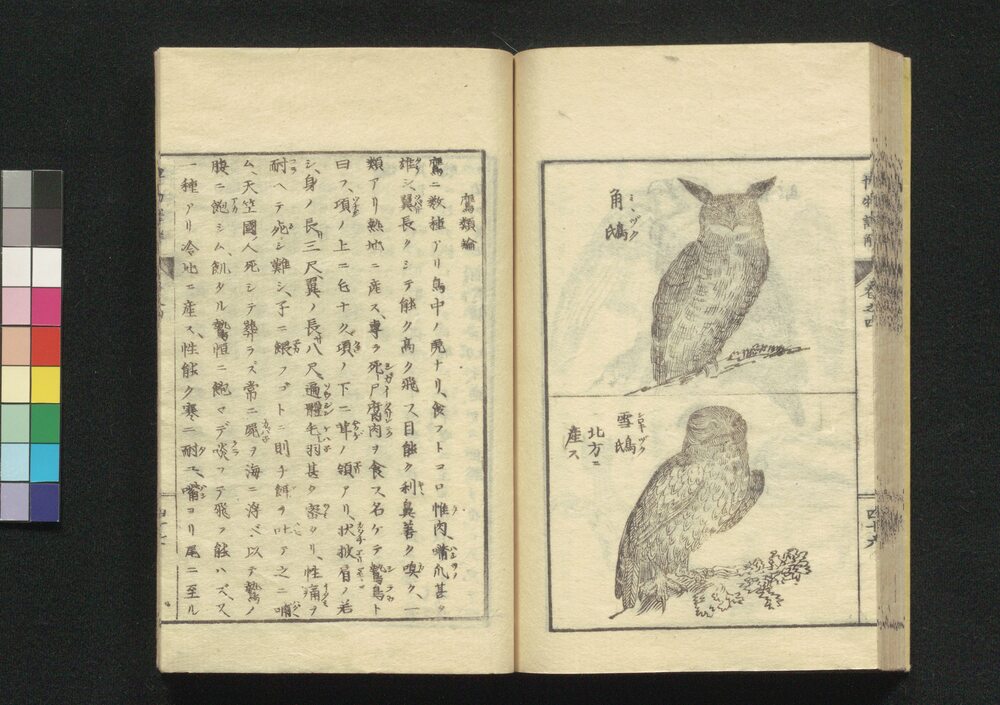 角鴟
ミヽヅク
雪鴟
北方ニ
産ス
四十六
鷲類論
鷲ニ数種アリ鳥中ノ虎ナリ、食フトコロ惟肉、嘴爪甚タ
雄シ、翼長クシテ能ク高ク飛フ、目能ク利鼻善ク嗅ク、一
類アリ熱地ニ産ス、専ラ死尸腐肉ヲ食ス名ケテ鷲鳥ト
曰フ、項ノ上ニ毛ナク項ノ下ニ茸ノ領アリ、状披肩ノ若
シ、身ノ長三尺、翼ノ長八尺、遍體毛羽甚タ密ナリ、性痛ヲ
耐ヘテ死シ難シ、子ニ餵フゴトニ則チ餌ヲ吐テ之ニ哺
ム、天竺國人死シテ葬ラス常ニ死ヲ海ニ浮ベ、以テ鷲ノ
腹ニ飽シム、飢タル鷲恒ニ飽マデ啖フテ飛フ能ハズ、又
一種アリ冷地ニ産ス、性能ク寒ニ耐エ、嘴ヨリ尾ニ至ル